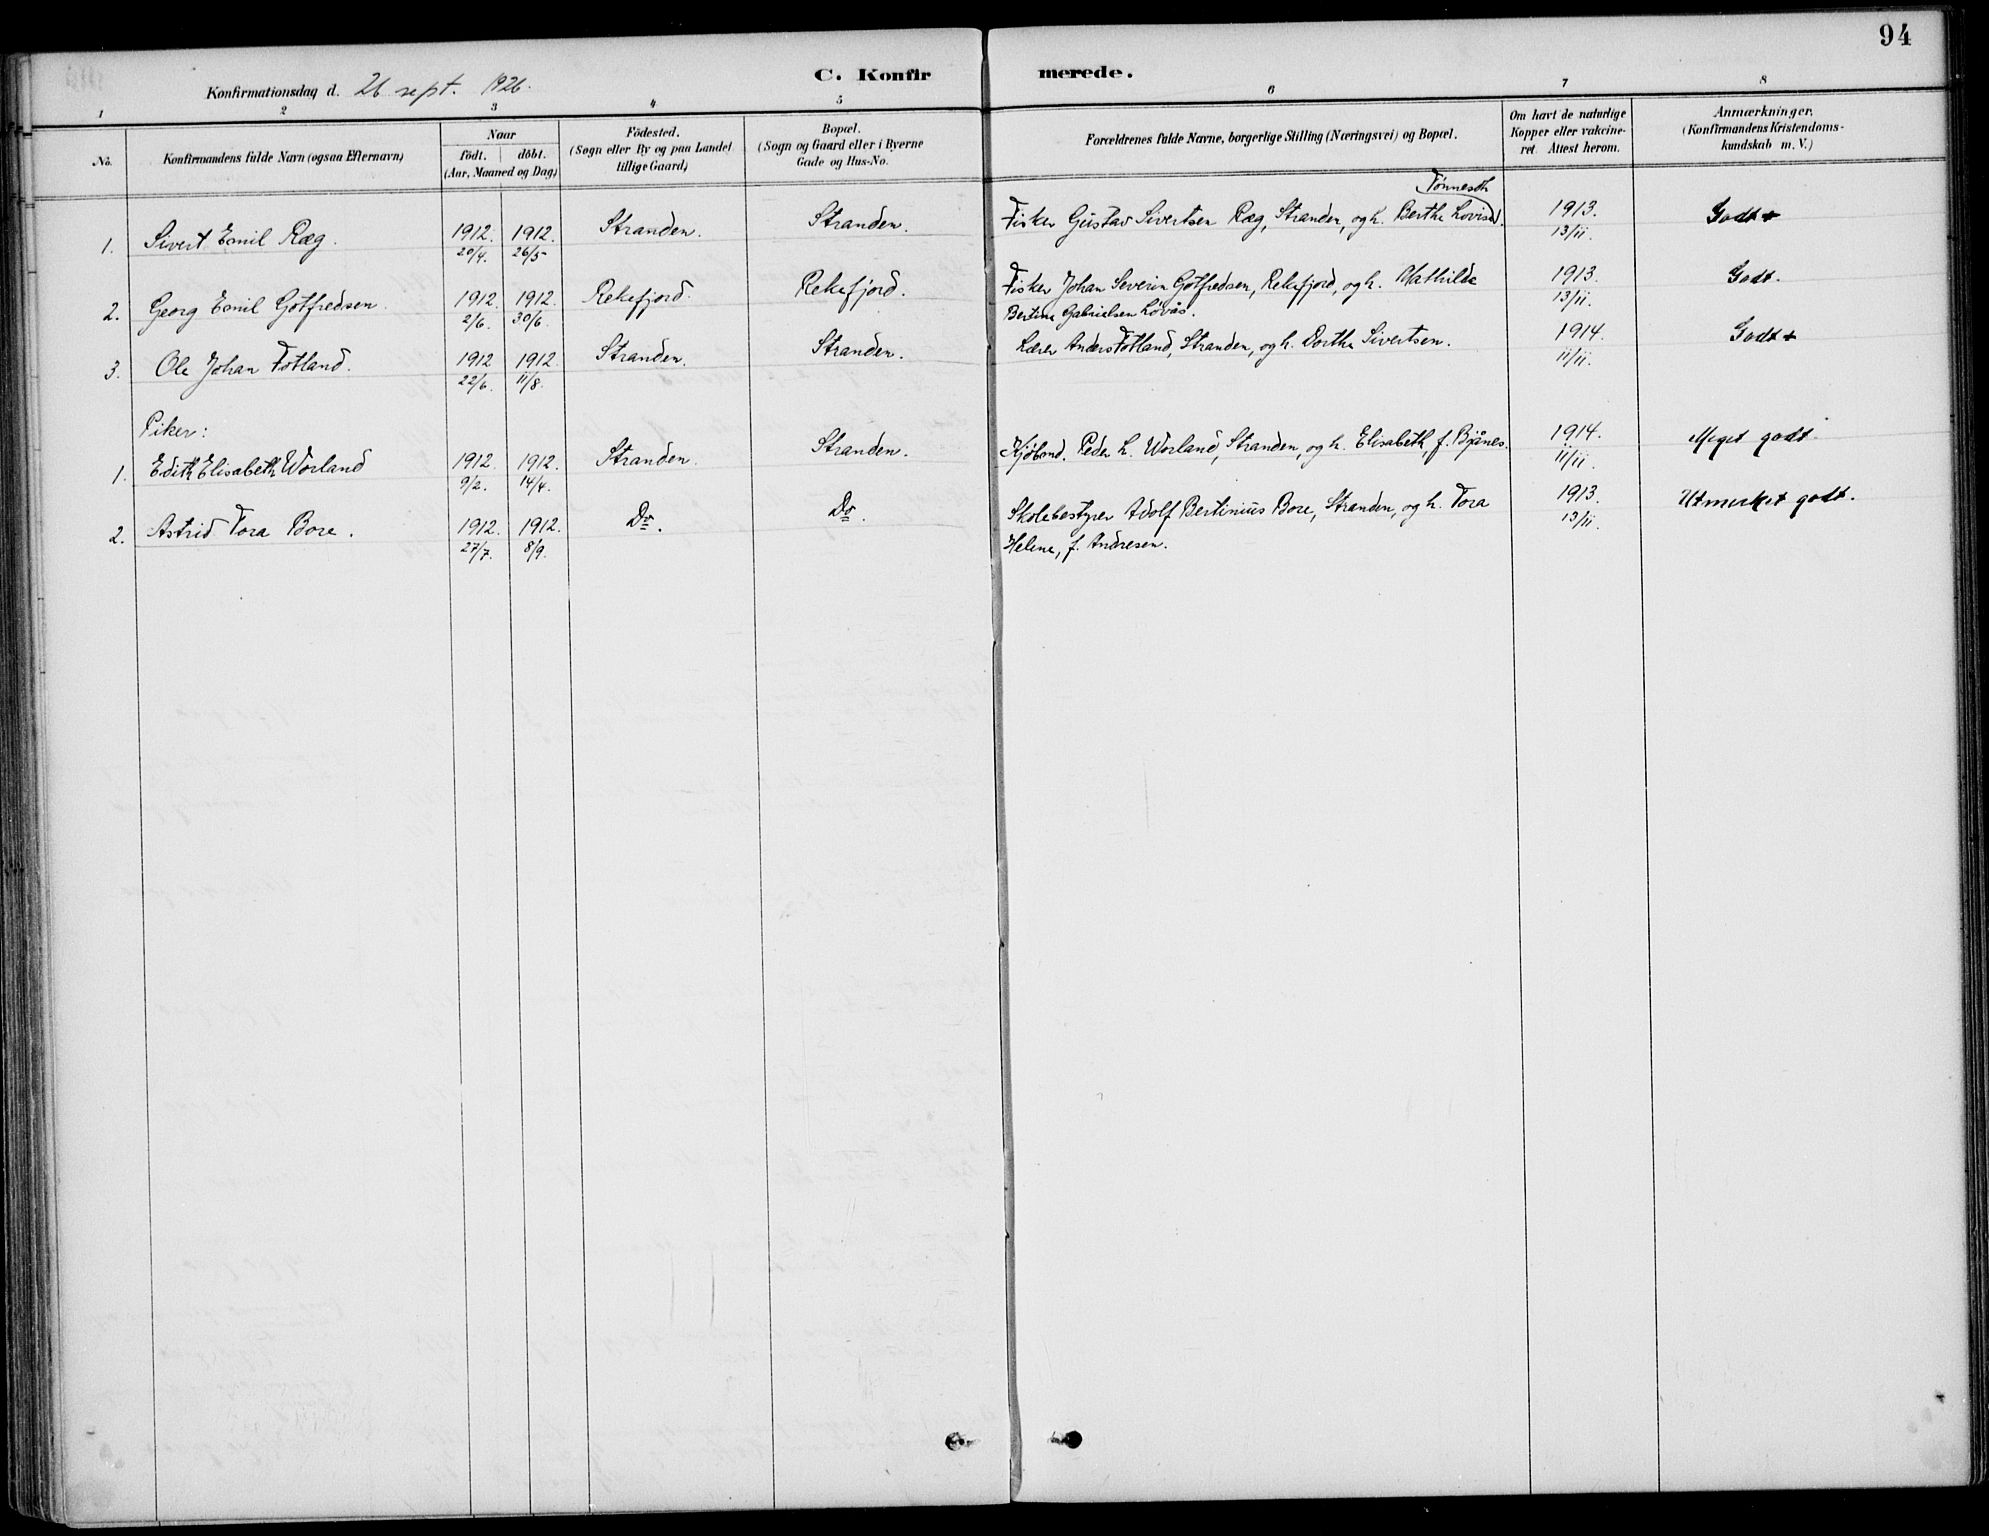 94
C. Konfirmerede.
Konfirmationsdag d. 26 sept. 1926.
1 2 3 4 5 6 7 8
No. Konfirmandens fulde Navn (ogsaa Efternavn) Naar födt. döbt. (Aar, Maaned og Dag) Födested. (Sogn eller By og paa Landet tillige Gaard) Bopæl. (Sogn og Gaard eller i Byerne Gade og Hus-No. Forældrenes fulde Navne, borgerlige Stilling (Næringsvei) og Bopæl. Om havt de naturlige Kopper eller vakcineret. Attest herom. Anmærkninger. (Konfirmandens Kristendomskundskab m. V.)
Tønnesdt.
1. Sivert Emil Ræg. 1912. 1912. Stranden. Stranden. Fisker Gustav Sivertsen Ræg, Stranden, og h. Berthe Lovise 1913. Godt +
20/4. 26/5 13/11.
2. Georg Emil Gotfredsen. 1912. 1912. Rekefjord. Rekefjord. Fisker Johan Severin Gotfredsen, Rekefjord, og h. Mathilde 1913. Godt.
2/6. 30/6. Bertine Gabrielsen Løvås. 13/11.
3. Ole Johan Fotland. 1912 1912. Stranden. Stranden. Lærer Anders Fotland, Stranden, og h. Dorthe Sivertsen. 1914. Godt +
22/6. 11/8. 11/11.
Piker:
1. Edith Elisabeth Worland 1912. 1912. Stranden. Stranden. Kjöbmd. Peder L. Worland, Stranden, og h. Elisabeth, f. Bjånes. 1914. Meget godt.
9/2. 14/4. 11/11.
2. Astrid Tora Bore. 1912. 1912. Do. Do. Skolebestyrer Adolf Bertinius Bore, Stranden, og h. Tora 1913. Utmerket godt.
27/7. 8/9. Helene, f. Andresen. 13/11.